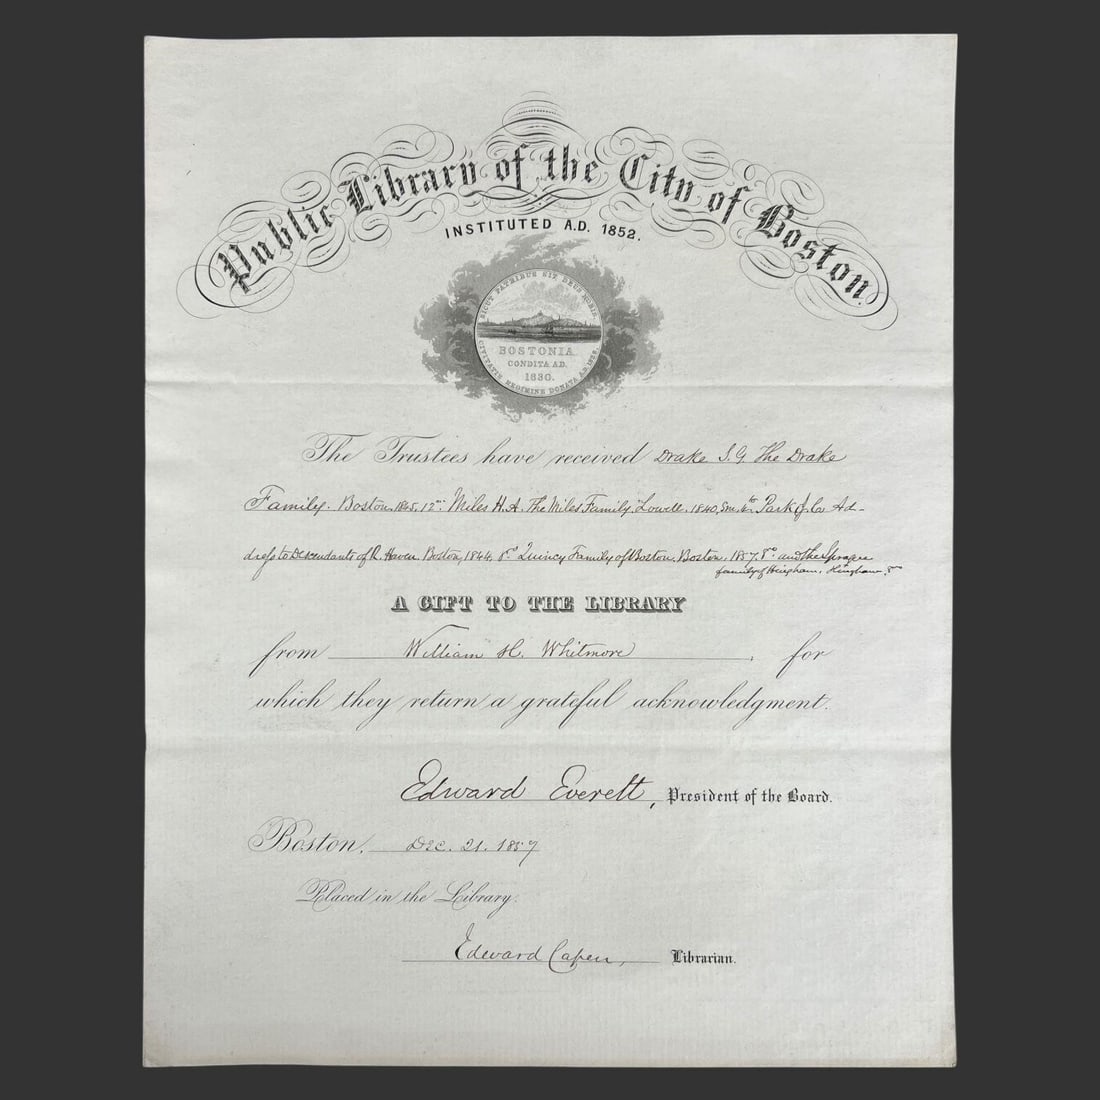 Public Library of the City of Boston.
INSTITUTED A.D. 1852.
SICUT PATRIBUS SIT DEUS NOBIS.
BOSTONIA.
CONDITA AD.
1630.
CIVITATIS REGIMINE DONATA A.D. 1822.
The Trustees have received Drake S. G. The Drake
Family. Boston, 1845, 12mo. Miles H. A. The Miles Family, Lowell, 1840, Park J. C. Ad-
dress to Descendants of R. Haven. Boston, 1844, 8o. Quincy Family of Boston. Boston, 1857. 8o. and the Sprague
family of Hingham. Hingham, 8o
A GIFT TO THE LIBRARY
from William H. Whitmore, for
which they return a grateful acknowledgment.
Edward Everett, President of the Board.
Boston, Dec. 21. 1857
Placed in the Library:
Edward Capen, Librarian.